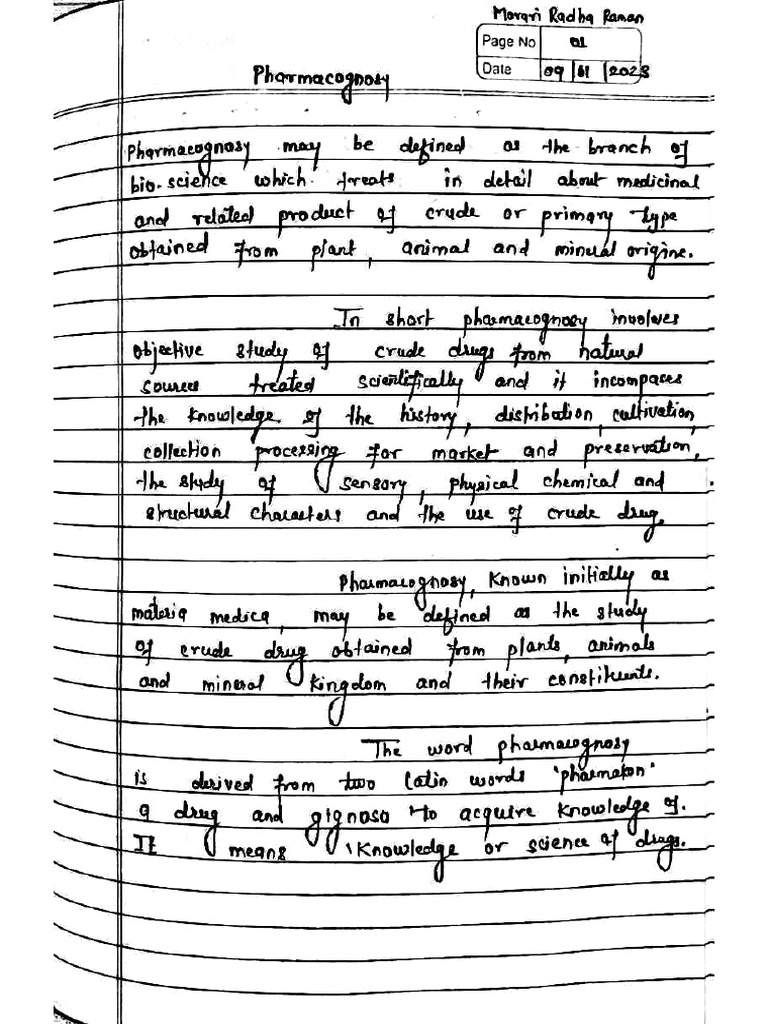 Morari Radha Raman
Page No 01
Date 09/11/2023
Pharmacognosy
Pharmacognosy may be defined as the branch of
bio-science which treats in detail about medicinal
and related product of crude or primary type
obtained from plant, animal and mineral origine.
In short pharmacognosy involves
objective study of crude drugs from natural
sources treated scientifically and it incompaces
the knowledge of the history, distribution, cultivation,
collection processing for market and preservation,
the study of sensory, physical chemical and
structural characters and the use of crude drug.
Pharmacognosy, known initially as
materia medica, may be defined as the study
of crude drug obtained from plants, animals
and mineral kingdom and their constituents.
The word pharmacognosy
is derived from two latin words 'pharmakon'
a drug and gignoso 'to acquire knowledge of.
It means 'knowledge or science of drugs.